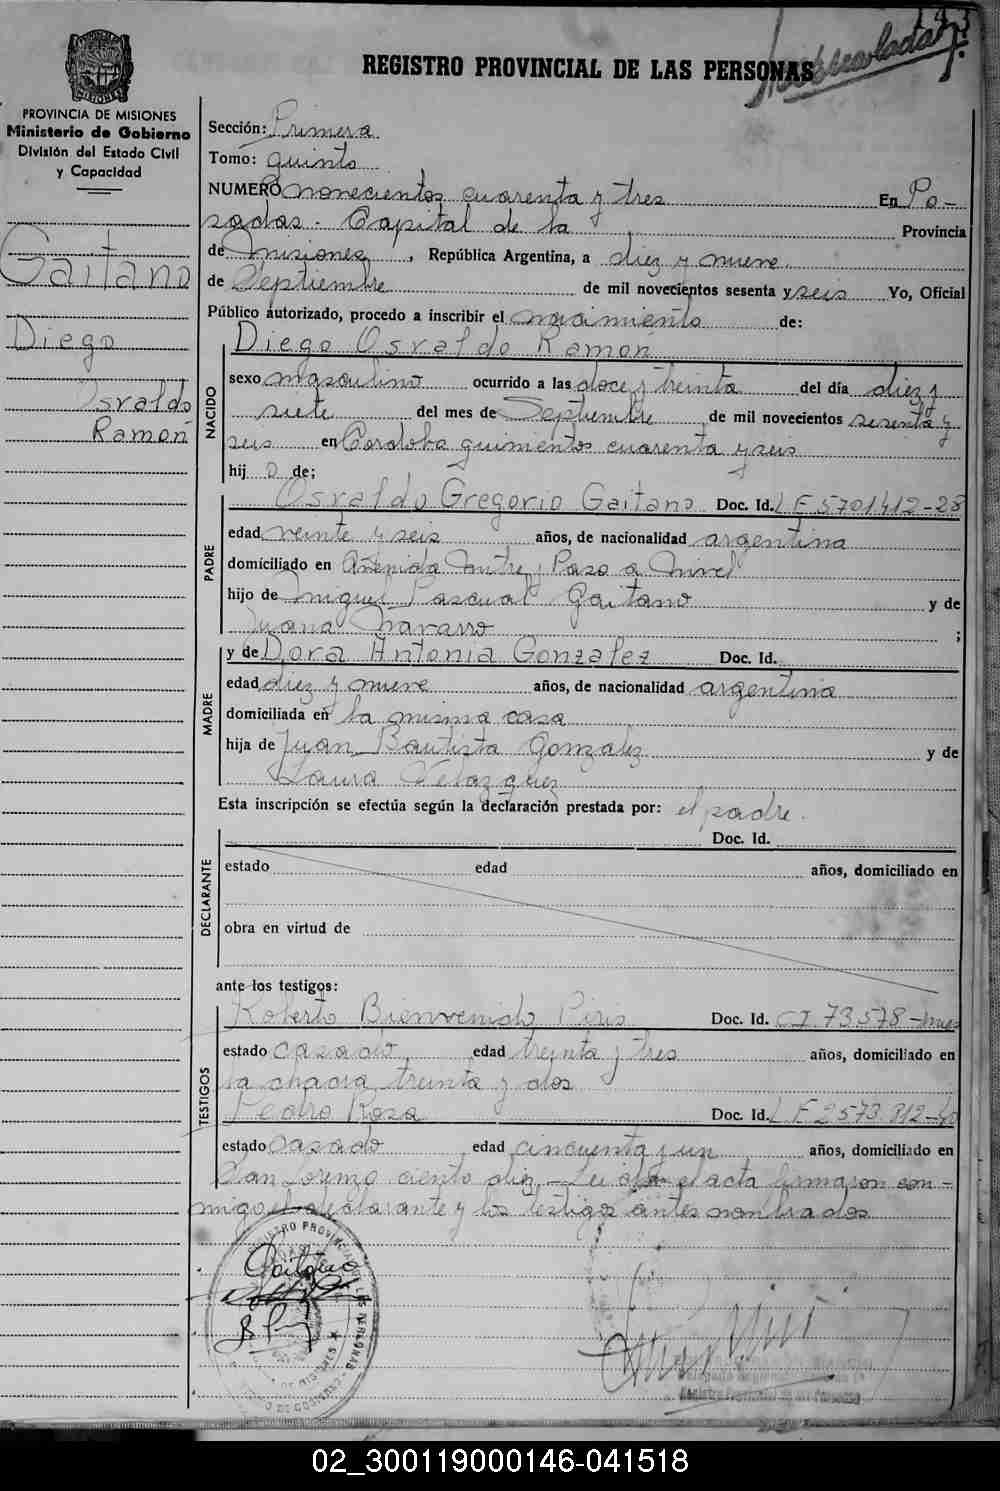 PROVINCIA DE MISIONES
Ministerio de Gobierno
División del Estado Civil
y Capacidad
Gaitano
Diego
Osvaldo
Ramón
REGISTRO PROVINCIAL DE LAS PERSONAS
Sección: Primera
Tomo: quinto
NUMERO novecientos cuarenta y tres En Po-
sadas - Capital de la Provincia
de Misiones, República Argentina, a diez y nueve
de Septiembre de mil novecientos sesenta y seis Yo, Oficial
Público autorizado, procedo a inscribir el nacimiento de:
NACIDO
Diego Osvaldo Ramón
sexo masculino ocurrido a las doce y treinta del día diez y
siete del mes de Septiembre de mil novecientos sesenta y
seis en Cordoba quinientos cuarenta y seis
hij o de;
PADRE
Osvaldo Gregorio Gaitano Doc. Id. L E 5701412-28
edad veinte y seis años, de nacionalidad argentina
domiciliado en Avenida Mitre y Paso a Nivel
hijo de Miguel Pascual Gaitano y de
Juana Navarro ;
MADRE
y de Dora Antonia Gonzalez Doc. Id.
edad diez y nueve años, de nacionalidad argentina
domiciliada en la misma casa
hija de Juan Bautista Gonzalez y de
Laura Velazquez
Esta inscripción se efectúa según la declaración prestada por: el padre.
DECLARANTE
Doc. Id.
estado edad años, domiciliado en
obra en virtud de
ante los testigos:
TESTIGOS
Roberto Bienvenido Piris Doc. Id. C I. 73.578-mnes
estado casado edad treinta y tres años, domiciliado en
la chacra treinta y dos
Pedro Rosa Doc. Id. L E 2573.812-
estado casado edad cincuenta y un años, domiciliado en
San Lorenzo ciento diez.- Leida el acta firmaron con-
migo el declarante y los testigos antes nombrados
Gaitano
REGISTRO PROVINCIAL DE LAS PERSONAS
02_300119000146-041518